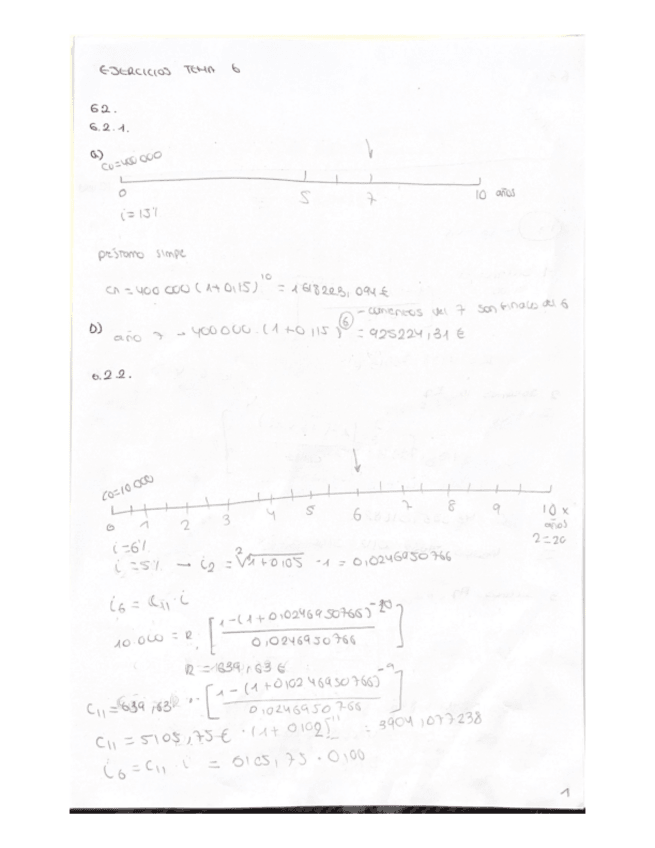 EJERCICIOS TEMA 6
6.2.
6.2.1.
a) C0=400 000
0 5 7 10 años
i=15%
préstamo simple
Cn=400 000 (1+0,15)^10 = 1618223,094€
b) año 7 → 400 000 · (1+0,15)^6 = 925224,31 € - comienzos del 7 son finales del 6
6.2.2.
C0=10 000
0 1 2 3 4 5 6 7 8 9 10 x
años
2=20
i=6%
i=5% → i2 = ²√1+0,05 -1 = 0,0246950766
i6 = C11 · i
10.000 = R · [1-(1+0,0246950766)^-20 / 0,0246950766]
R = 639,63 €
C11 = 639,63 · [1-(1+0,0246950766)^-9 / 0,0246950766]
C11 = 5105,75 € · (1+0,02)^11 = 3904,077238
i6 = C11 i = 5105,75 ·
1